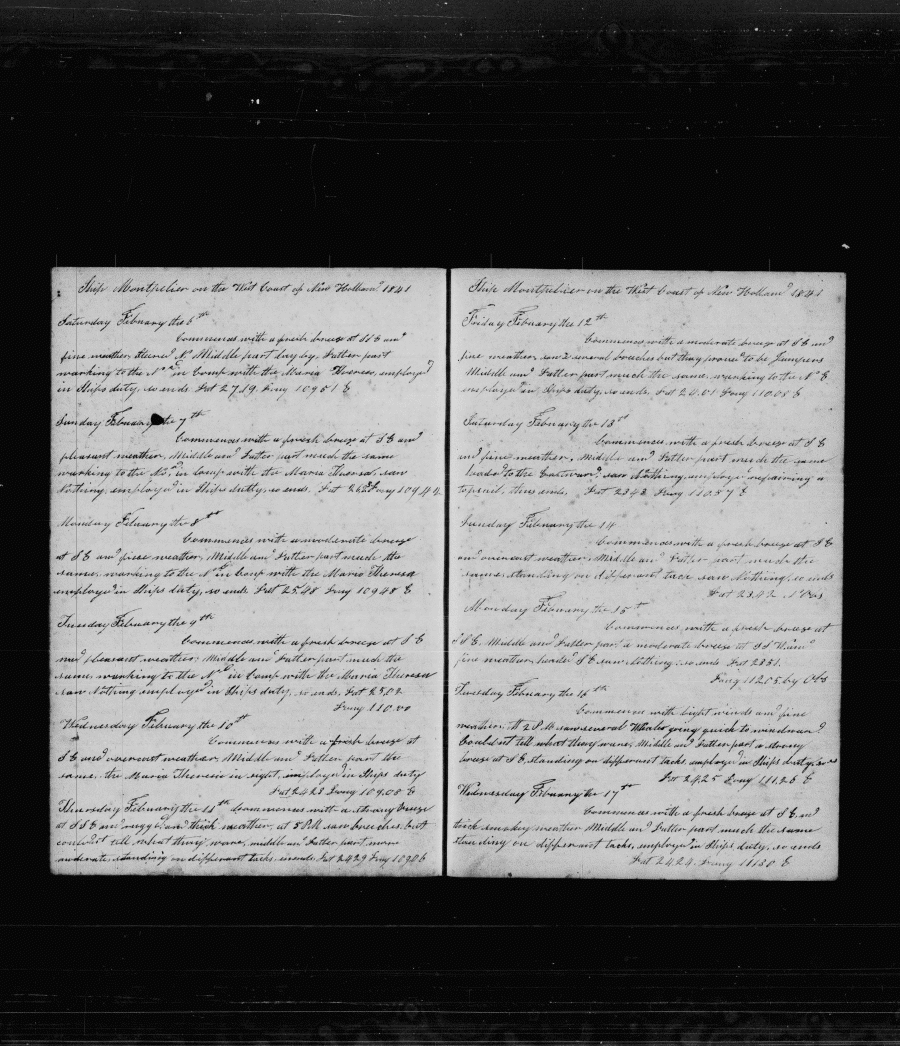 Ship Montpelier on the West Coast of New Holland 1841
Saturday February the 6th
Commences with a fresh breeze at S E and
fine weather, steered N. Middle part lay by, Latter part
working to the Nd in Comp with the Maria Theresa, employed
in Ships duty, so ends. Lat 27.19. Long 109 51 E
Sunday February the 7th
Commences with a fresh breeze at S E and
pleasant weather, Middle and Latter part much the same
working to the Nd, in Comp with the Maria Theresa, saw
Nothing, employed in Ships dutty, so ends. Lat Long 109 44
Monday Febuary the 8th
Commences with a moderate breeze
at S E and fine weather, Middle and Latter part much the
same, working to the Nd in Comp with the Maria Theresa
employed in Ships duty, so ends Latt 25.48 Long 109 48 E
Tuesday February the 9th
Commences with a fresh breeze at S E
and pleasant weather, Middle and Latter part much the
same, working to the Nd in Comp with the Maria Theresa
saw Nothing employed in Ships duty, so ends, Lat 25,02
Long 110.00
Wednesday February the 10th
Commences with a fresh breeze at
S E and overcast weather, Middle and Latter part the
same, the Maria Theresia in sight, employed in Ships duty
Lat 24 28 Long 109.08 E
Thursday February the 11th Commences with a strong breeze
at S S E and rugged and thick weather, at 5 P.M. saw breeches but
could not tell what they ware, middle and Latter part more
moderate, standing on differant tacks. so ends Lat 24 29 Long 109 06
Ship Montpelier on the West Coast of New Holland 1841
Friday February the 12th
Commences with a moderate breeze at S E and
fine weather, saw 2 several breaches but they proved to be Jumpers
Middle and Latter part much the same, working to the Nd &
employed in Ships duty, so ends. Lat 24.01 Long 110.08 E
Saturday February the 13th
Commences with a fresh breeze at S E
and fine weather. Middle and Latter part much the same
headed to the Eastward, saw Nothing, employed repairing a
topsail, thus ends, Lat 23 43 Long 110 57 E
Sunday February the 14
Commences with a fresh breeze at S E
and overcast weather, Middle and Latter part much the
same, standing on differant tack saw Nothing, so ends
Lat 23.42 No Obs
Monday February the 15th
Commences with a fresh breeze at
S S E, Middle and Latter part a moderate breeze at S S W and
fine weather, headed S E saw Nothing so ends Lat 23 51.
Long 112 05 by Obs
Tuesday February the 16th
Commences with light winds and fine
weather. At 2 P.M. saw several Whales going quick to windward
Could not tell what they ware, Middle and Latter part a strong
breeze at S E, standing on differant tacks, employed in Ships duty, so ends
Lat 24.25 Long 111.28 E
Wednesday Febuary the 17th
Commences with a fresh breeze at S E and
thick smokey weather Middle and Latter part much the same
standing on differant tacks, employed in Ships duty, so ends
Lat 24.24. Long 111 50 E